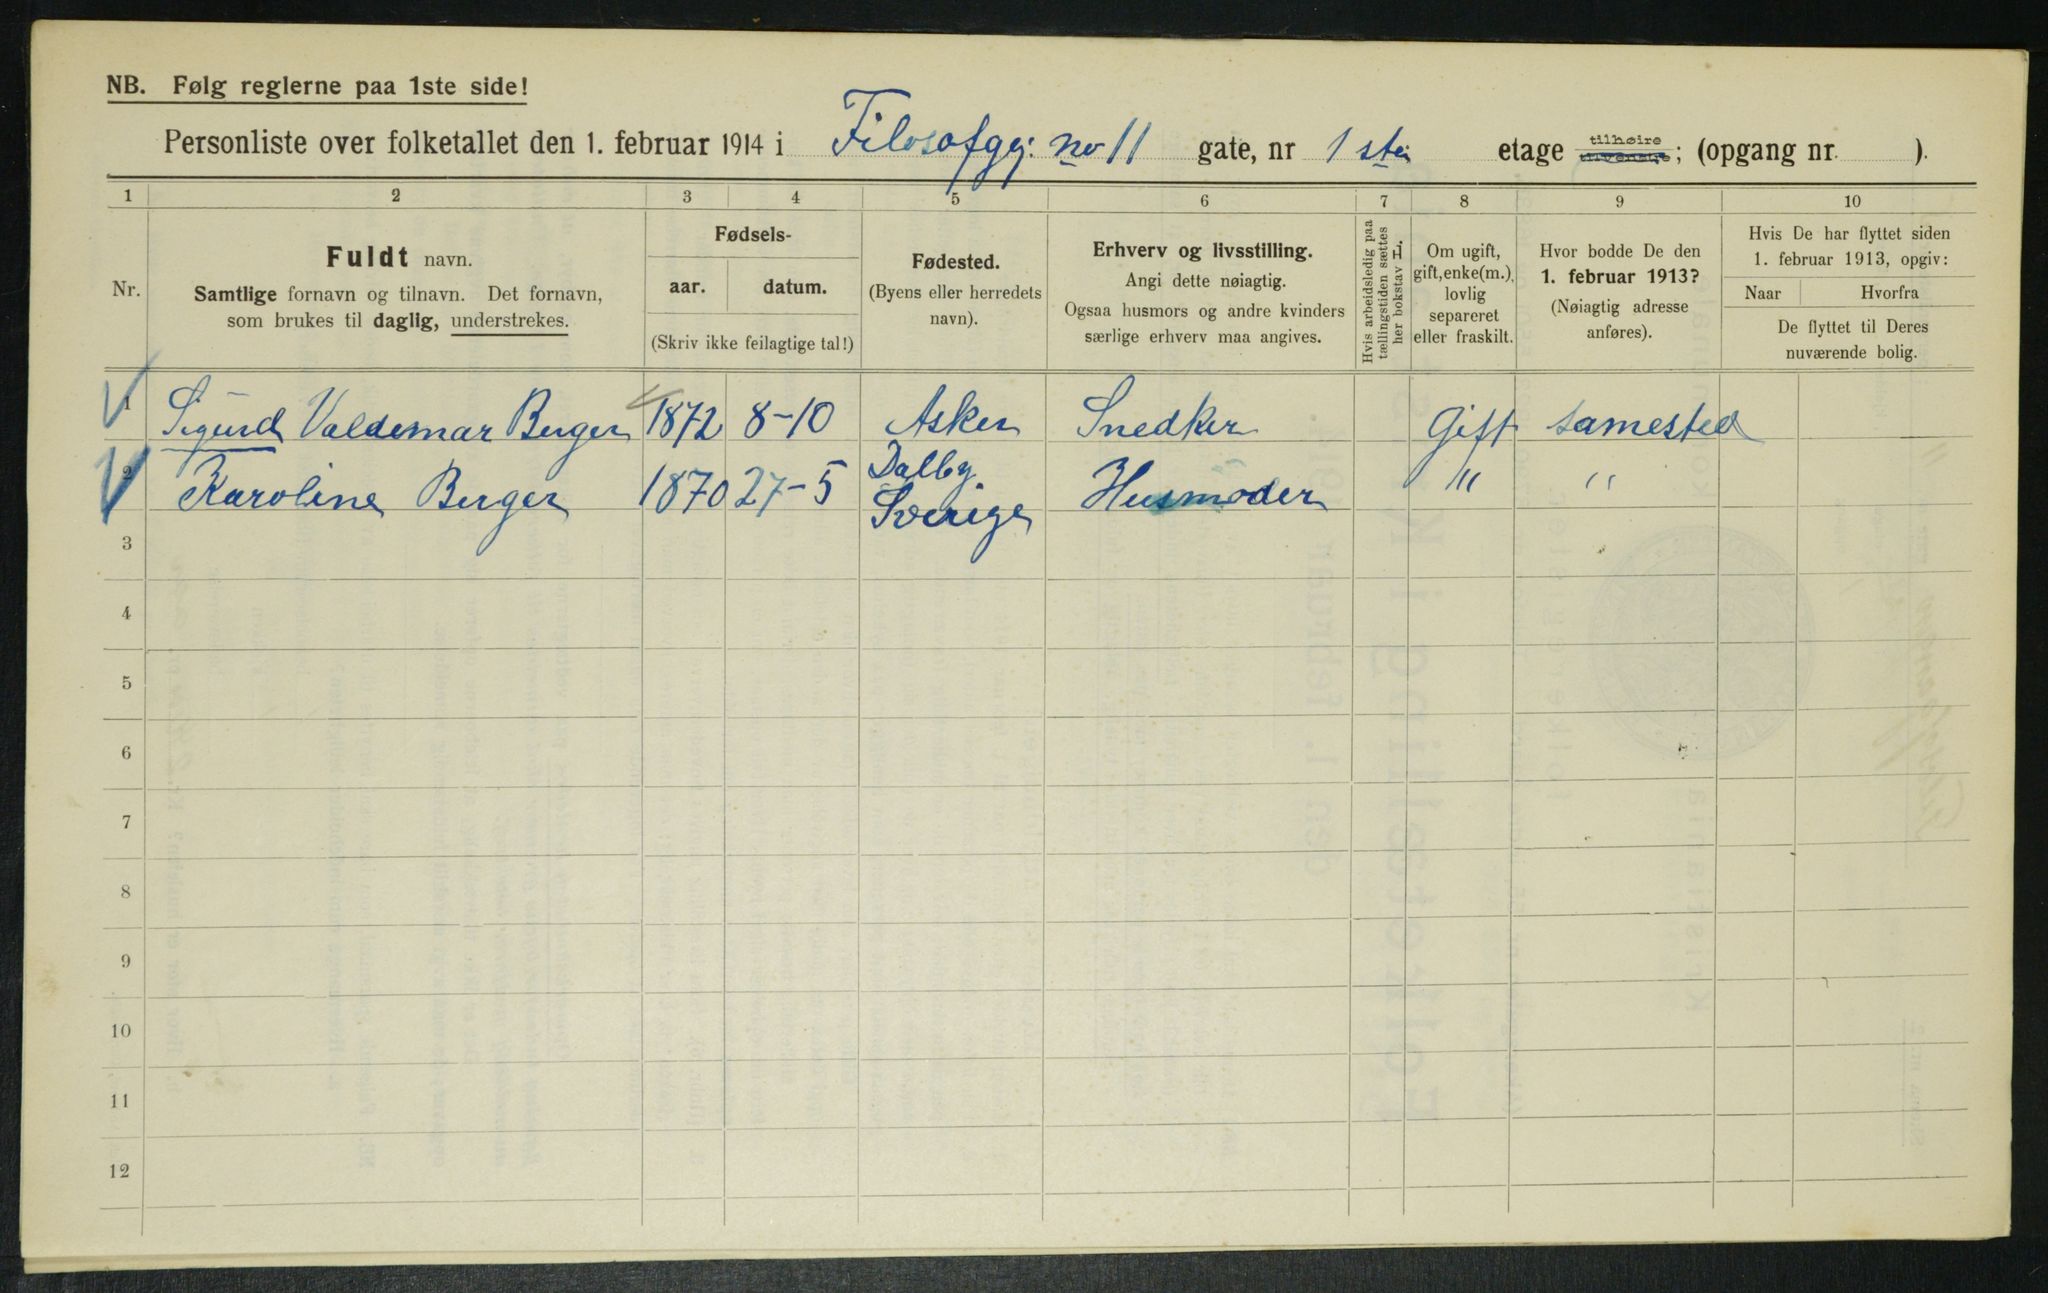 NB. Følg reglerne paa 1ste side!
Personliste over folketallet den 1. februar 1914 i Filosofgt: no 11 gate, nr 1ste etage tilhøire tilvenstre; (opgang nr. ).
1 2 3 4 5 6 7 8 9 10
Nr.
Fuldt navn.
Samtlige fornavn og tilnavn. Det fornavn,
som brukes til daglig, understrekes.
Fødsels-
aar. datum.
(Skriv ikke feilagtige tal!)
Fødested.
(Byens eller herredets
navn).
Erhverv og livsstilling.
Angi dette nøiagtig.
Ogsaa husmors og andre kvinders
særlige erhverv maa angives.
Hvis arbeidsledig paa
tællingstiden sættes
her bokstav L.
Om ugift,
gift, enke(m.),
lovlig
separeret
eller fraskilt.
Hvor bodde De den
1. februar 1913?
(Nøiagtig adresse
anføres).
Hvis De har flyttet siden
1. februar 1913, opgiv:
Naar Hvorfra
De flyttet til Deres
nuværende bolig.
1 Sigurd Valdemar Berger 1872 8-10 Asker Snedker Gift samested
2 Karoline Berger 1870 27-5 Dalby Sverige Husmoder " "
3
4
5
6
7
8
9
10
11
12